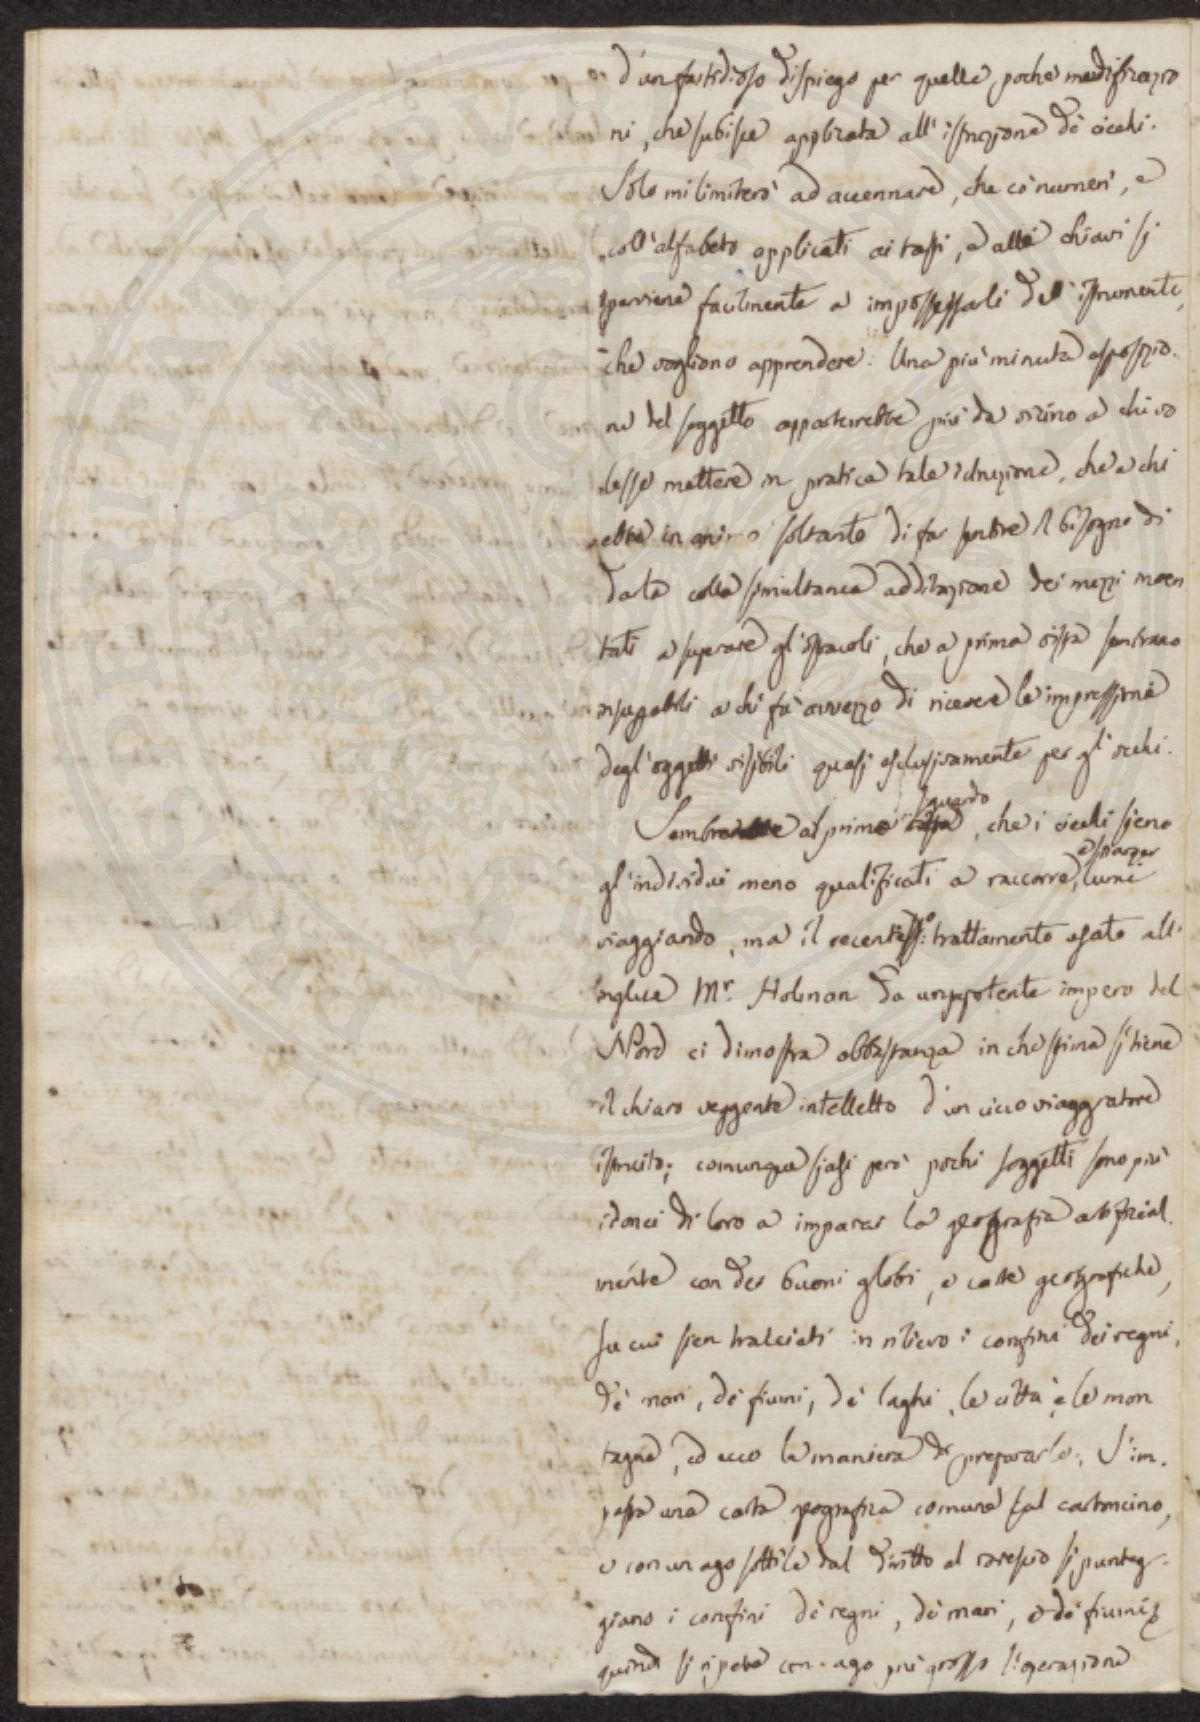 d'un fastidioso dispiego per quelle poche modificazio
ni, che subisce applicata all'istruzione de' ciechi.
Solo mi limiterò ad accennare, che co' numeri, e
coll'alfabeto applicati ai tassi, e alle chiavi si
perviene facilmente a impossessarli dell'istrumento,
che vogliono apprendere. Una più minuta esposizio-
ne del soggetto apparterrebbe più da vicino a chi vo
lesse mettere in pratica tale istruzione, che a chi
ebbe in animo soltanto di far sentire il bisogno di
darla colla simultanea additazione dei mezzi inven
tati a superare gl'ostacoli, che a prima vista sembrano
insuperabili a chi fù avvezzo di ricevere le impressioni
degl'oggetti visibili quasi esclusivamente per gl'occhi.
sguardo
Sembra al primo, che i ciechi sieno
e sparger
gl'individui meno qualificati a raccorre, lumi
viaggiando, ma il recentisso: trattamento usato all'
inglese Mr. Holman da un potente impero del
Nord ci dimostra abbastanza in che stima si tiene
il chiaro veggente intelletto d'un cieco viaggiatore
istruito; comunque siasi però pochi soggetti sono più
idonei di loro a imparar la geografia artifizial-
mente con dei buoni globi, e carte geografiche,
su cui sien tralciati in rilievo i confini dei regni,
de' mari, de' fiumi, de' laghi, le città e le mon
tagne, ed ecco la maniera di prepararle. S'im-
pasta una carta geografica comune sul cartoncino,
e con un ago sottile dal diritto al rovescio si punteg-
giano i confini de' regni, de' mari, e de' fiumi
quindi si ripete con ago più grosso l'operazione